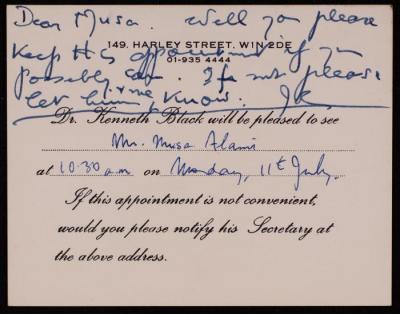 Dear Musa. Will you please
149, HARLEY STREET, W1N 2DE
keep this appointment if you
01-935 4444
possibly can. If not please
let him & me know. J.K.
Dr. Kenneth Black will be pleased to see
Mr. Musa Alami
at 10.30 a.m on Monday, 11th July.
If this appointment is not convenient,
would you please notify his Secretary at
the above address.